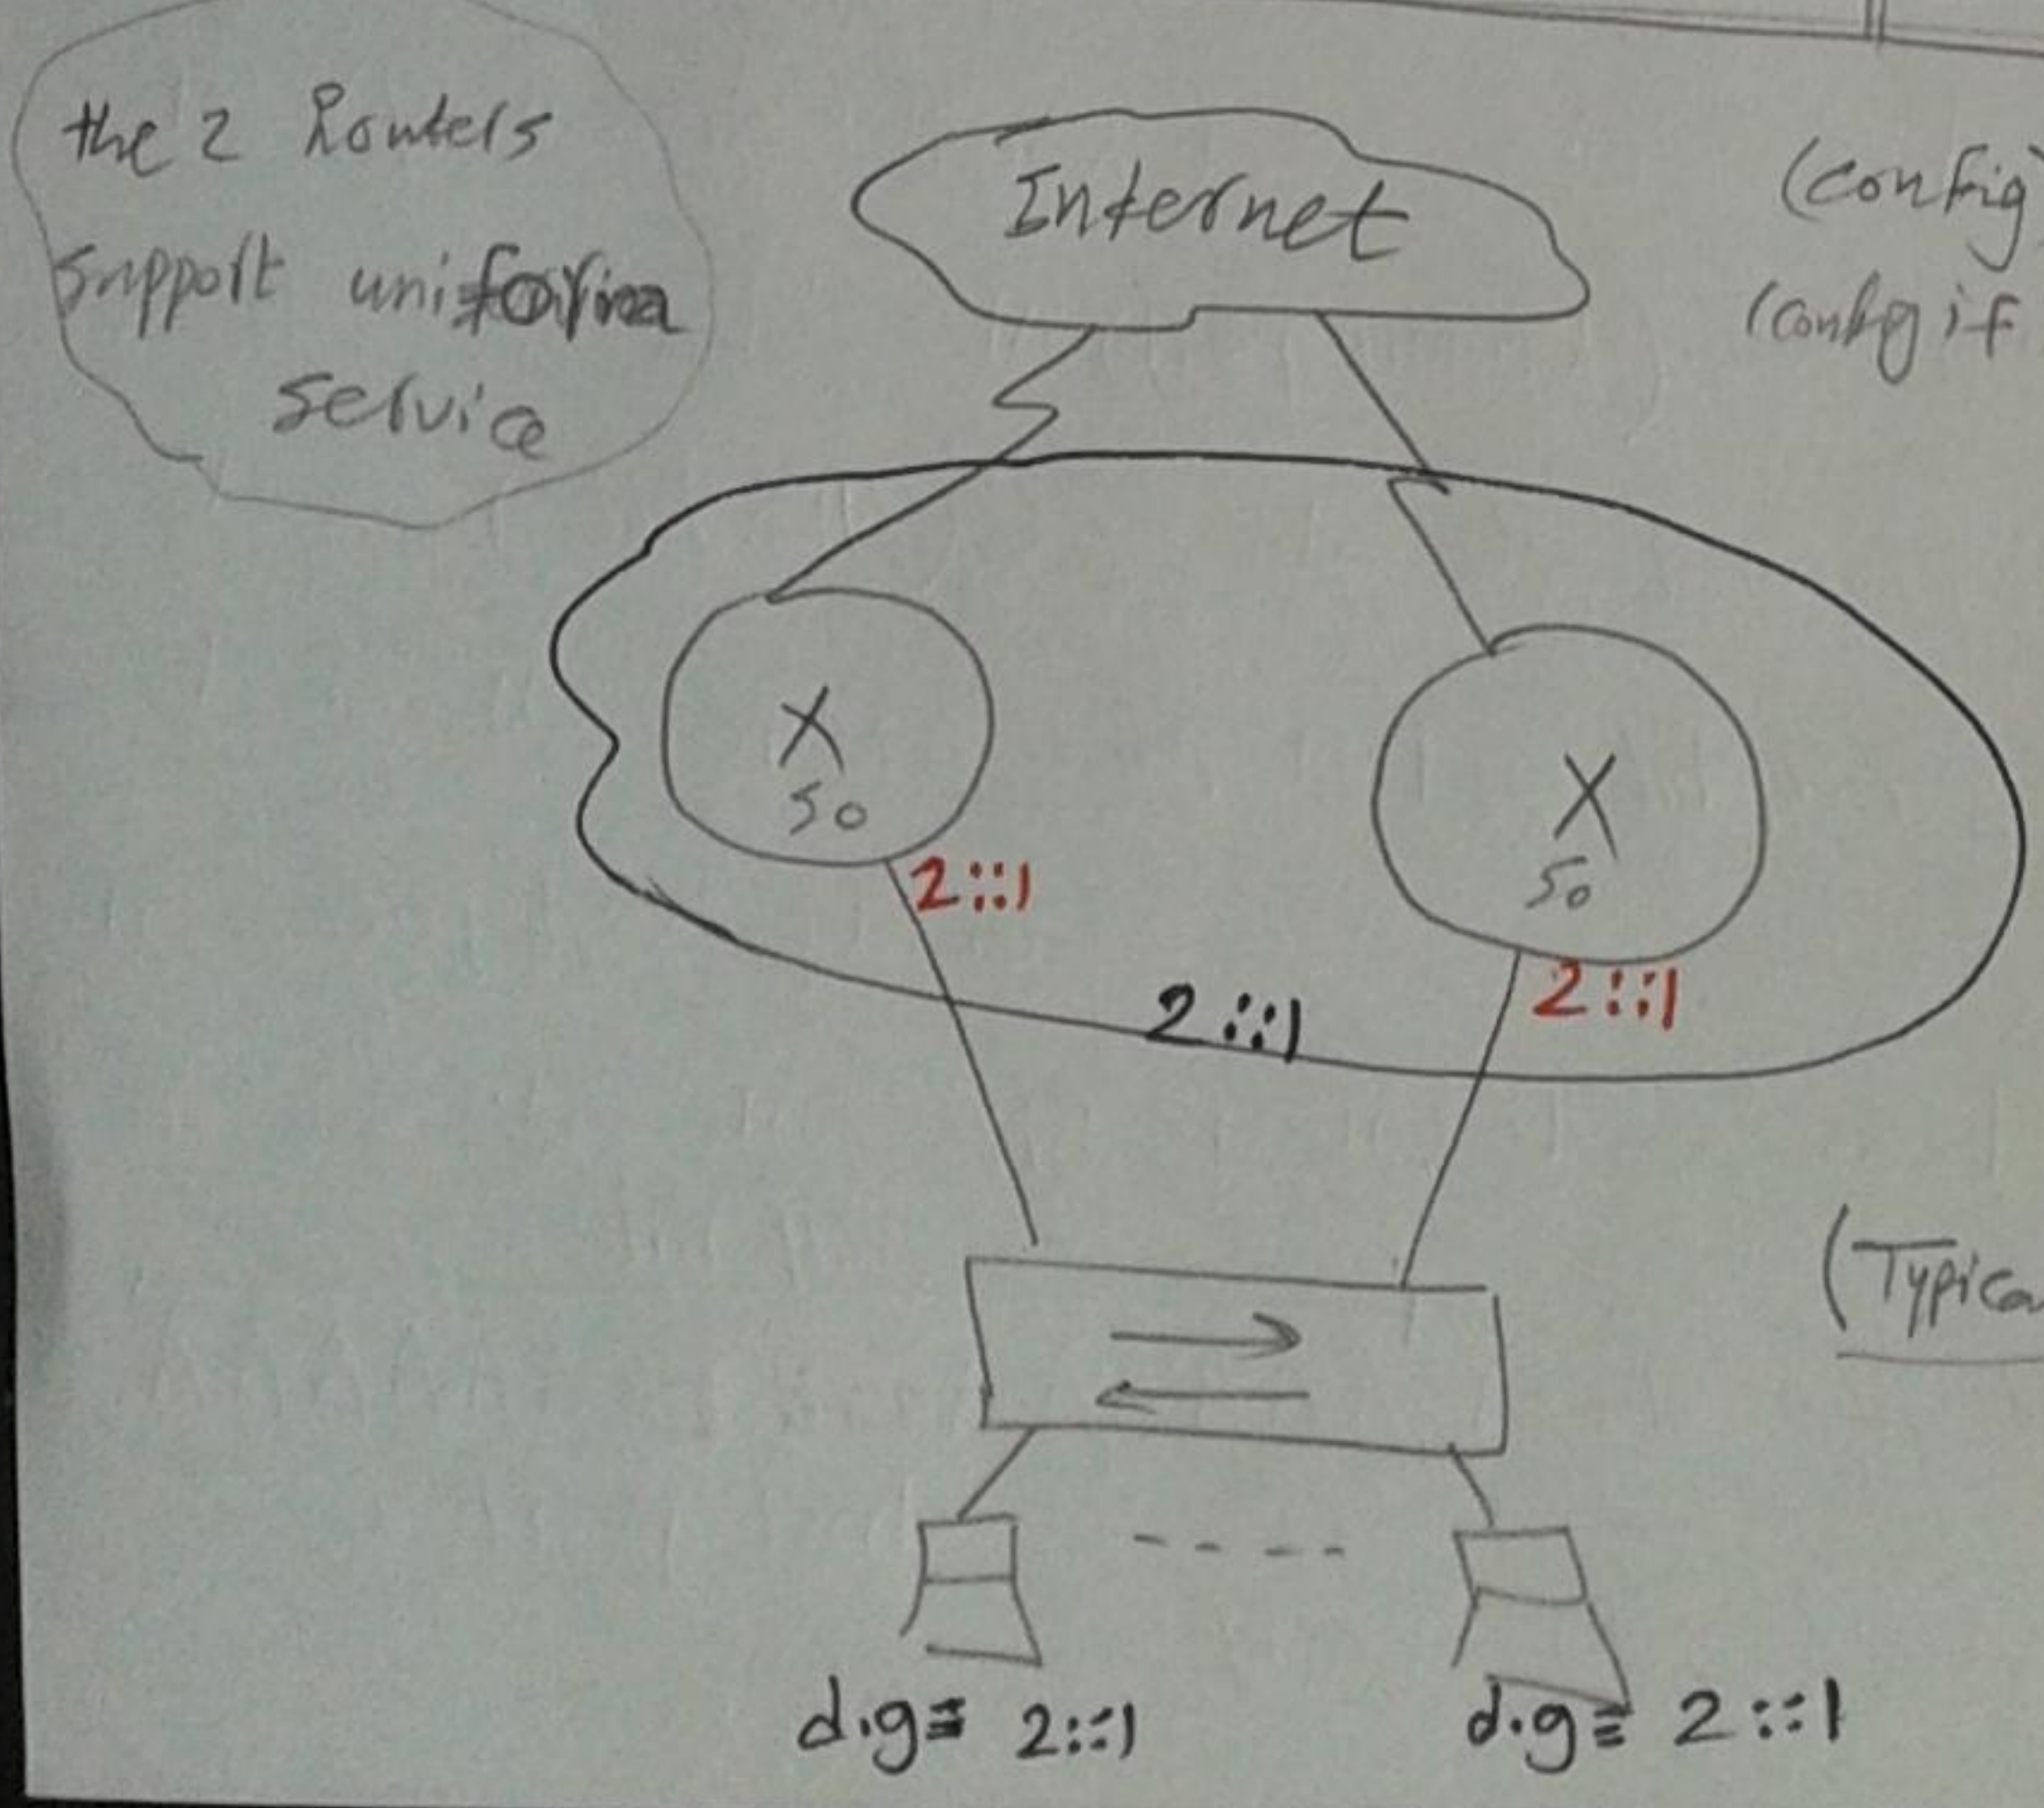 the 2 Routers
support uniform
service
Internet
(config)
(config if
X
50
X
50
2::1
2::1
2::1
(Typica
d.g≡ 2::1
d.g≡ 2::1